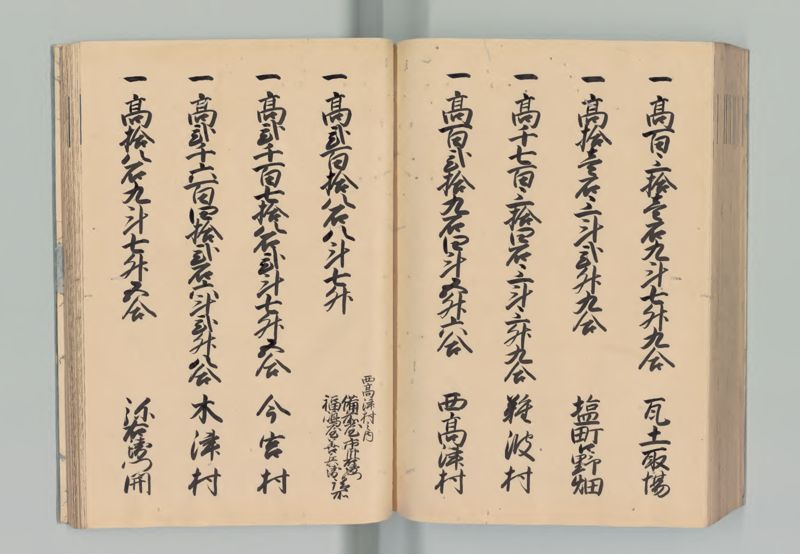 一 高百三拾壱石九斗七升九合 瓦土取場
一 高拾壱石三斗弐升九合 塩町野畑
一 高千七百三拾四石三斗三升九合 難波村
一 高百弐拾九石四斗五升六合 西高津村
一 高弐百拾八石八斗七升
西高津村之内
備前屋市
福嶋屋吉兵衛
一 高弐千百七拾八石弐斗七升五合 今宮村
一 高弐千六百四拾弐石六斗弐升八合 木津村
一 高拾八石九斗七升五合 弥右衛門開